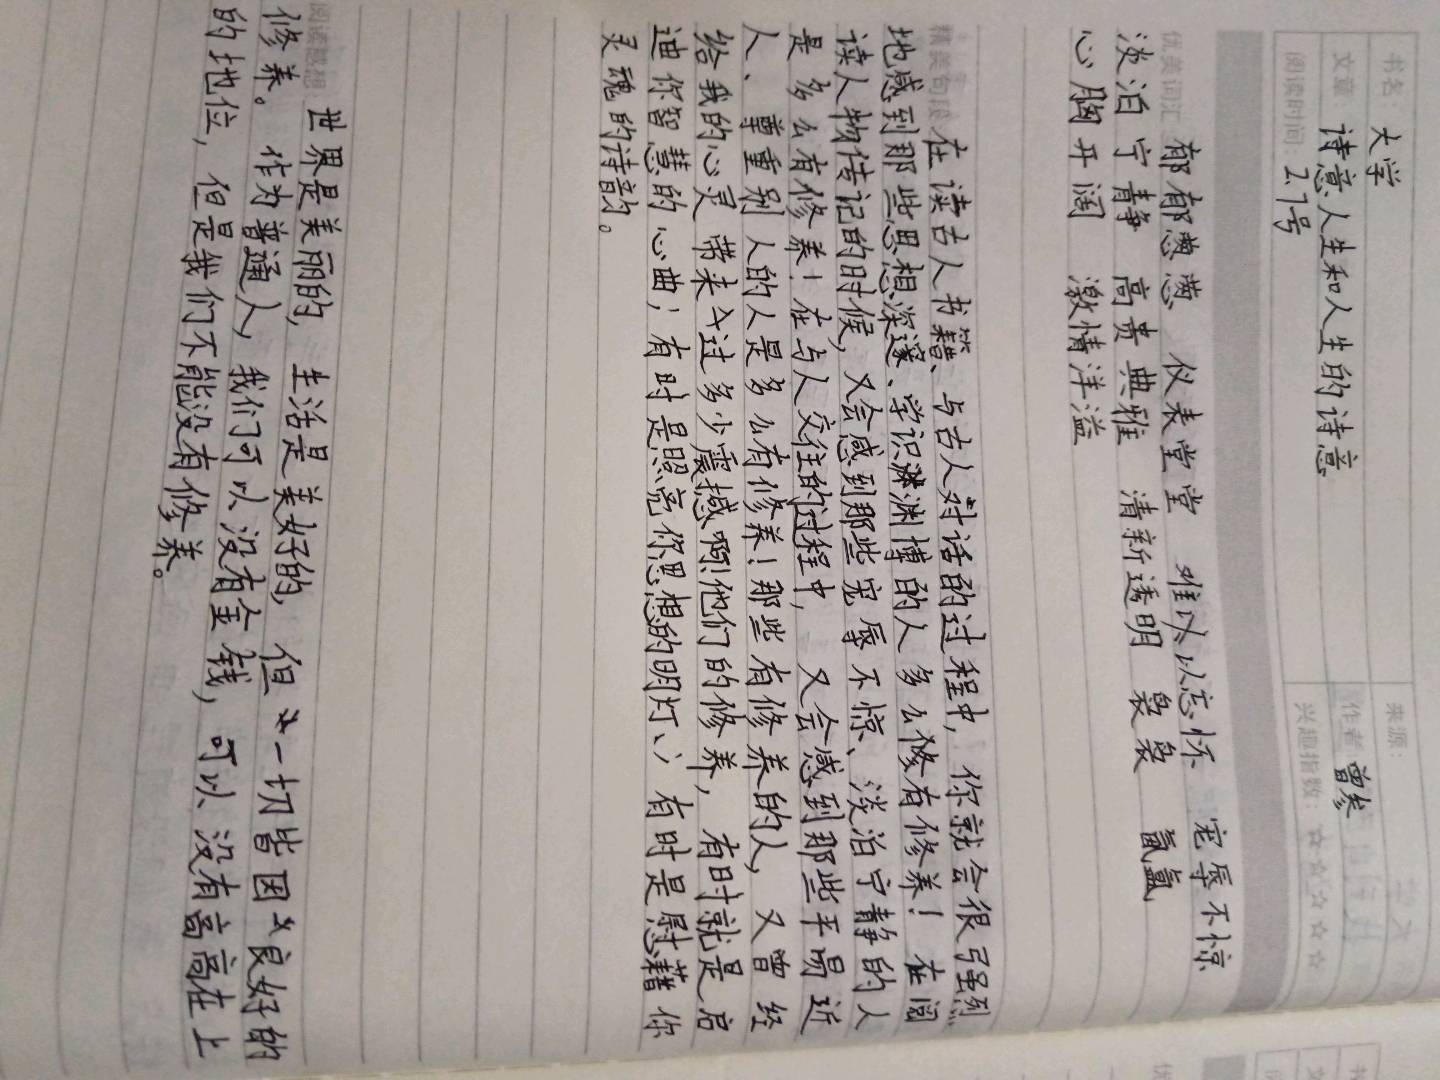 书名：大学
来源：
文章：诗意人生和人生的诗意
作者：曾参
阅读时间：2.7号
兴趣指数：☆☆☆☆☆
优美词汇
郁郁葱葱 仪表堂堂 难以以忘怀 宠辱不惊
淡泊宁静 高贵典雅 清新透明 袅袅 氤氲
心胸开阔 激情洋溢
精美句段
在读古人书籍、与古人对话的过程中，你就会很强烈
地感到那些思想深邃、学识渊博的人多么有修养！在阅
读人物传记的时候，又会感到那些宠辱不惊、淡泊宁静的人
是多么有修养！在与人交往的过程中，又会感到那些平易近
人、尊重别人的人是多么有修养！那些有修养的人，又曾经
给我的心灵带来过多少震撼啊！他们的修养，有时就是启
迪你智慧的心曲；有时是照亮你思想的明灯；有时是慰藉你
灵魂的诗韵。
阅读感想：
世界是美丽的，生活是美好的，但一切皆因良好的
修养。作为普通人，我们可以没有金钱，可以没有高高在上
的地位，但是我们不能没有修养。